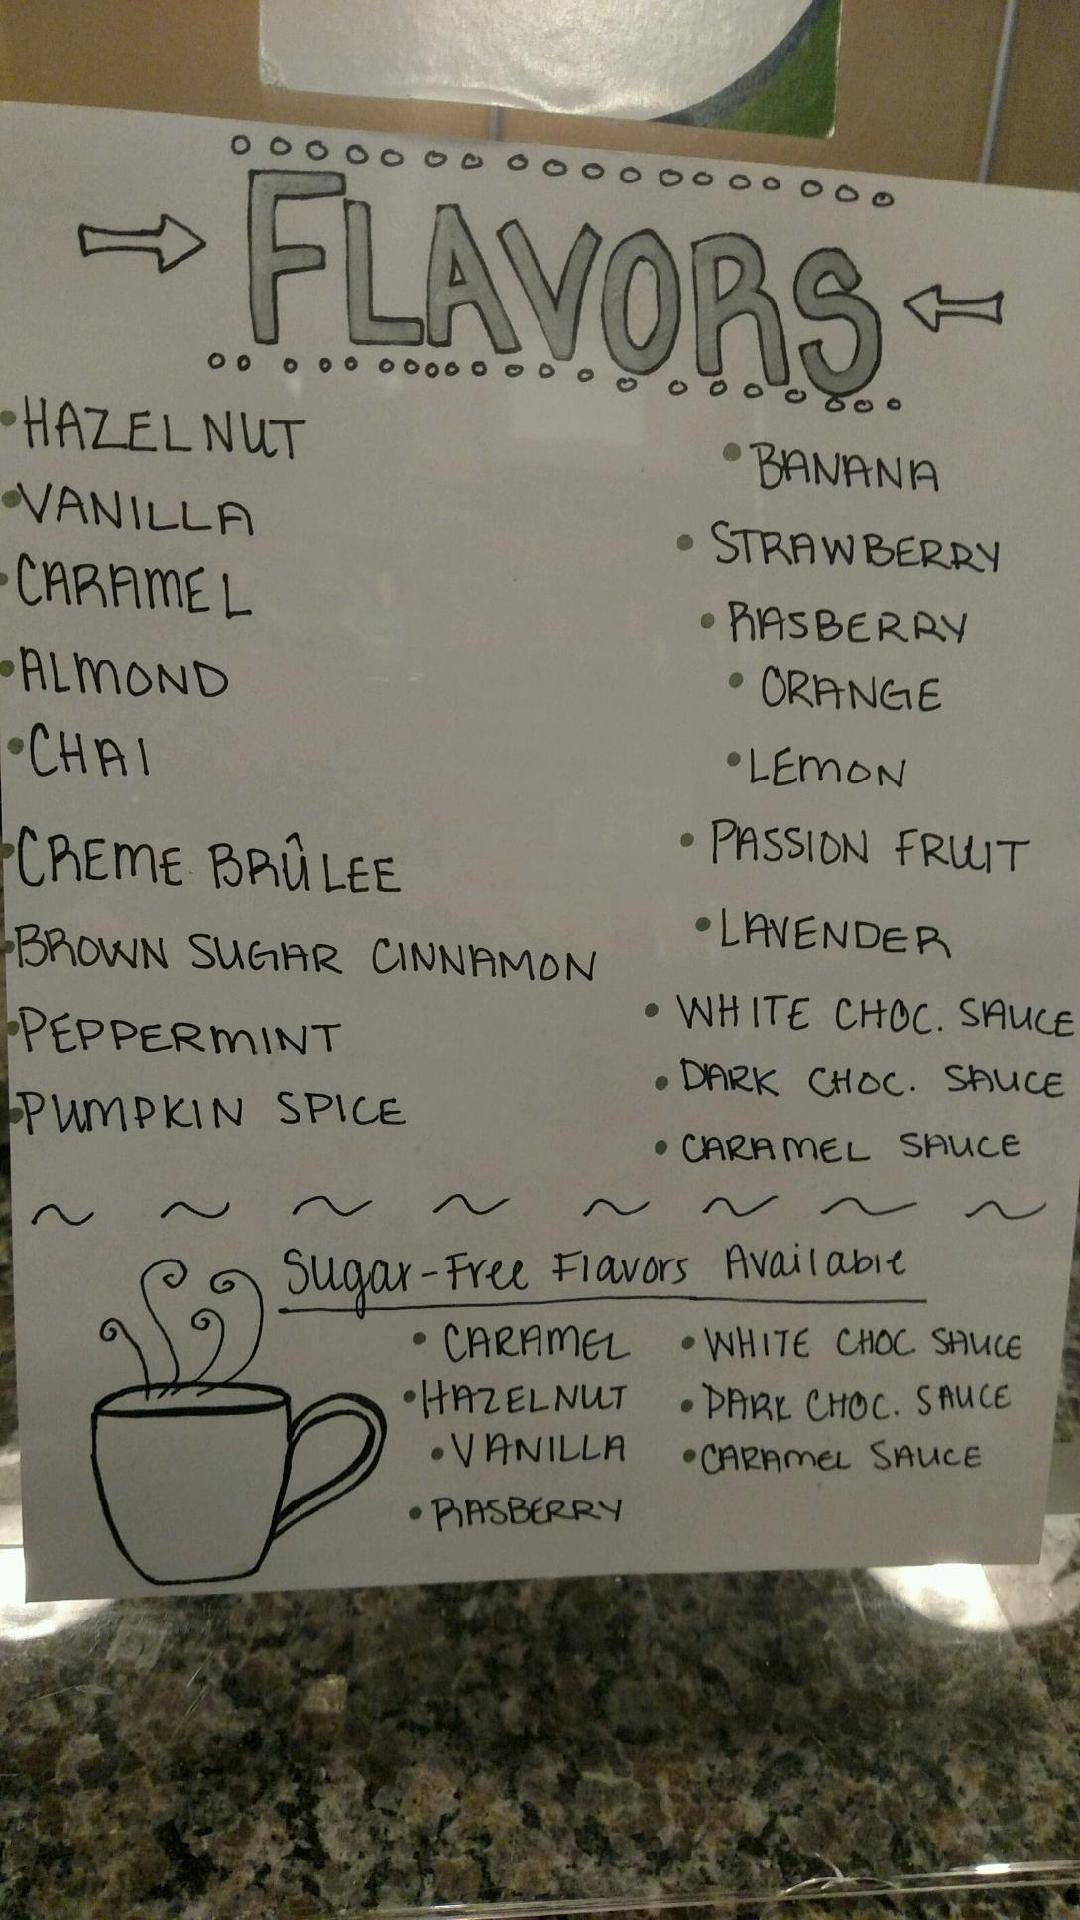 FLAVORS
• HAZELNUT
• VANILLA
• CARAMEL
• ALMOND
• CHAI
• CREME BRÛLEE
• BROWN SUGAR CINNAMON
• PEPPERMINT
• PUMPKIN SPICE
• BANANA
• STRAWBERRY
• RASBERRY
• ORANGE
• LEMON
• PASSION FRUIT
• LAVENDER
• WHITE CHOC. SAUCE
• DARK CHOC. SAUCE
• CARAMEL SAUCE
Sugar-Free Flavors Available
• CARAMEL
• HAZELNUT
• VANILLA
• RASBERRY
• WHITE CHOC SAUCE
• DARK CHOC. SAUCE
• CARAMEL SAUCE